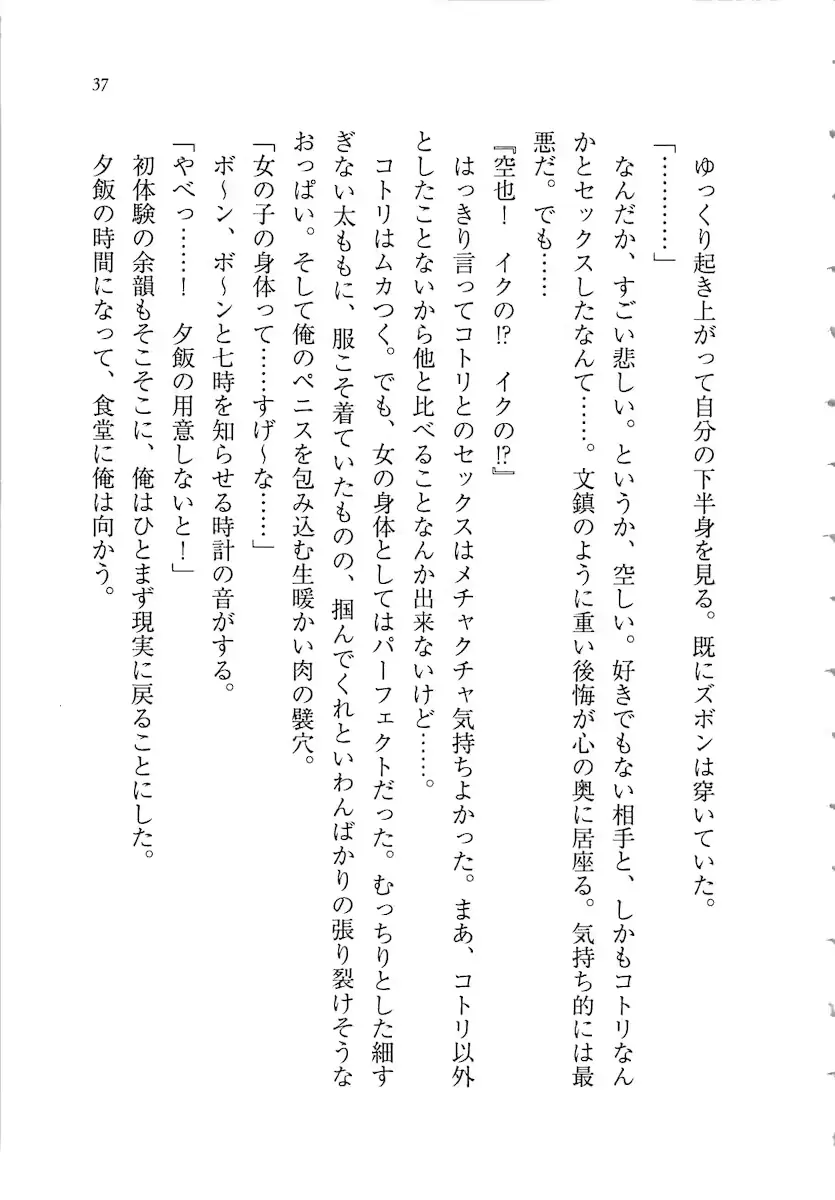 37
ゆっくり起き上がって自分の下半身を見る。既にズボンは穿いていた。
「…………」
なんだか、すごい悲しい。というか、空しい。好きでもない相手と、しかもコトリなん
かとセックスしたなんて……。文鎮のように重い後悔が心の奥に居座る。気持ち的には最
悪だ。でも……
『空也！　イクの⁉　イクの⁉』
はっきり言ってコトリとのセックスはメチャクチャ気持ちよかった。まあ、コトリ以外
としたことないから他と比べることなんか出来ないけど……。
コトリはムカつく。でも、女の身体としてはパーフェクトだった。むっちりとした細す
ぎない太ももに、服こそ着ていたものの、掴んでくれといわんばかりの張り裂けそうな
おっぱい。そして俺のペニスを包み込む生暖かい肉の襞穴。
「女の子の身体って……すげ～な……」
ボ～ン、ボ～ンと七時を知らせる時計の音がする。
「やべっ……！　夕飯の用意しないと！」
初体験の余韻もそこそこに、俺はひとまず現実に戻ることにした。
夕飯の時間になって、食堂に俺は向かう。